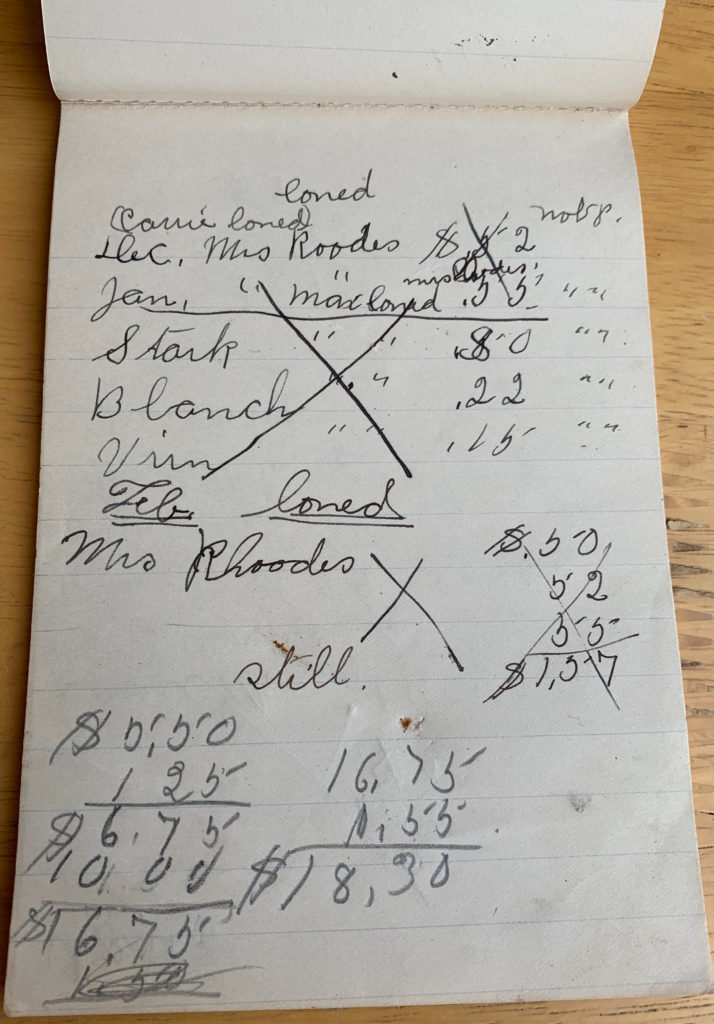 loned
(Carrie loned)
Dec, Mrs Roodes $.52
Mrs Roodes,
Jan, " " max loned .55 " "
Stark " " .80 " "
Blanch " " .22 " "
" " .15 " "
Feb. loned
Mrs Rhoodes $.50
52
55
$1,57
still.
$5,50
1 25
$6.75
10 00
$16,75
16,75
1,55
$18,30